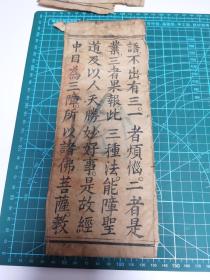 語不出有三。一者煩惱。二者是
業。三者果報。此三種法。能障聖
道。及以人天勝妙好事。是故經
中目為三障。所以諸佛菩薩教